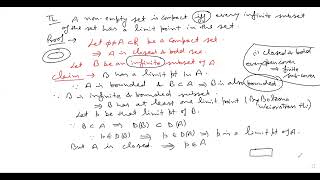 Th. A non-empty set is compact iff every infinite subset
of the set has a limit point in the set.
Proof → Let φ ≠ A ⊂ R be a compact set
⇒ A is closed & bdd set.
Let B be an infinite subset of A
claim → B has a limit pt in A.
∵ A is bounded & B ⊂ A ⇒ B is also bounded
∵ B is infinite & bounded subset
⇒ B has at least one limit point (By Bolzano
Weierstrass th.)
Let p be that limit pt of B.
∵ B ⊂ A ⇒ D(B) ⊂ D(A)
∵ p ∈ D(B) ⇒ p ∈ D(A) ⇒ p is a limit pt of A.
But A is closed ⇒ p ∈ A
(i) closed & bdd
(ii) every open cover
→ finite
sub-cover